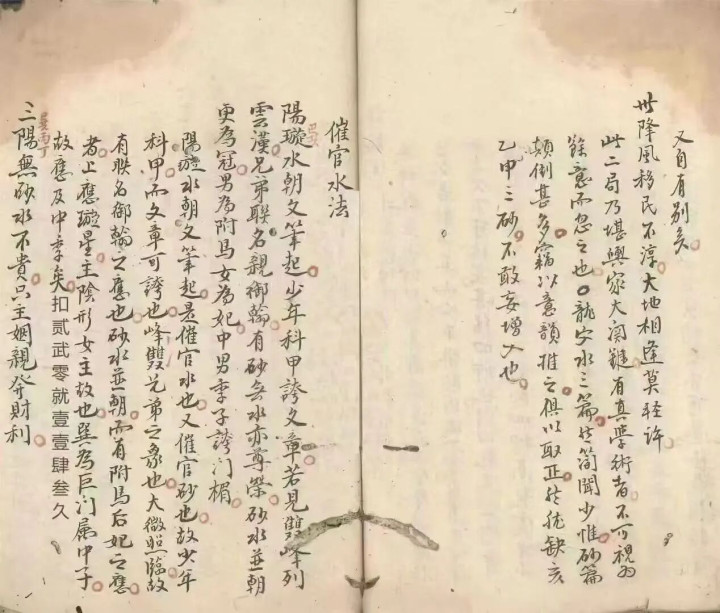 又自有别矣
世降風移民不淳大地相逢莫轻许
此二局乃堪輿家大関鍵有真學術者不可視為
餘意而忽之也龍穴水三篇簡聞少惟砂篇
顛倒甚多竊以意韻推之俱以取正缺亥
乙甲三砂不敢妄增入也
催官水法
巳
陽璇水朝文筆起少年科甲誇文章若見雙峰列
雲漢兄弟聯名親御翰有砂無水亦尊榮砂水並朝
更為冠男為附馬女為妃中男季子誇门楣
陽璇水朝文筆起是催官水也又催官砂也故少年
科甲而文章可誇也峰雙兄弟之象也太微照臨故
有联名御翰之應也砂水並朝而有附馬后妃之應
者上應璇星主陰形女主故也巽為巨门属中子
故應及中季矣扣贰武零就壹壹肆叁久
巽丙丁
三陽無砂水不貴只主姻親發財利